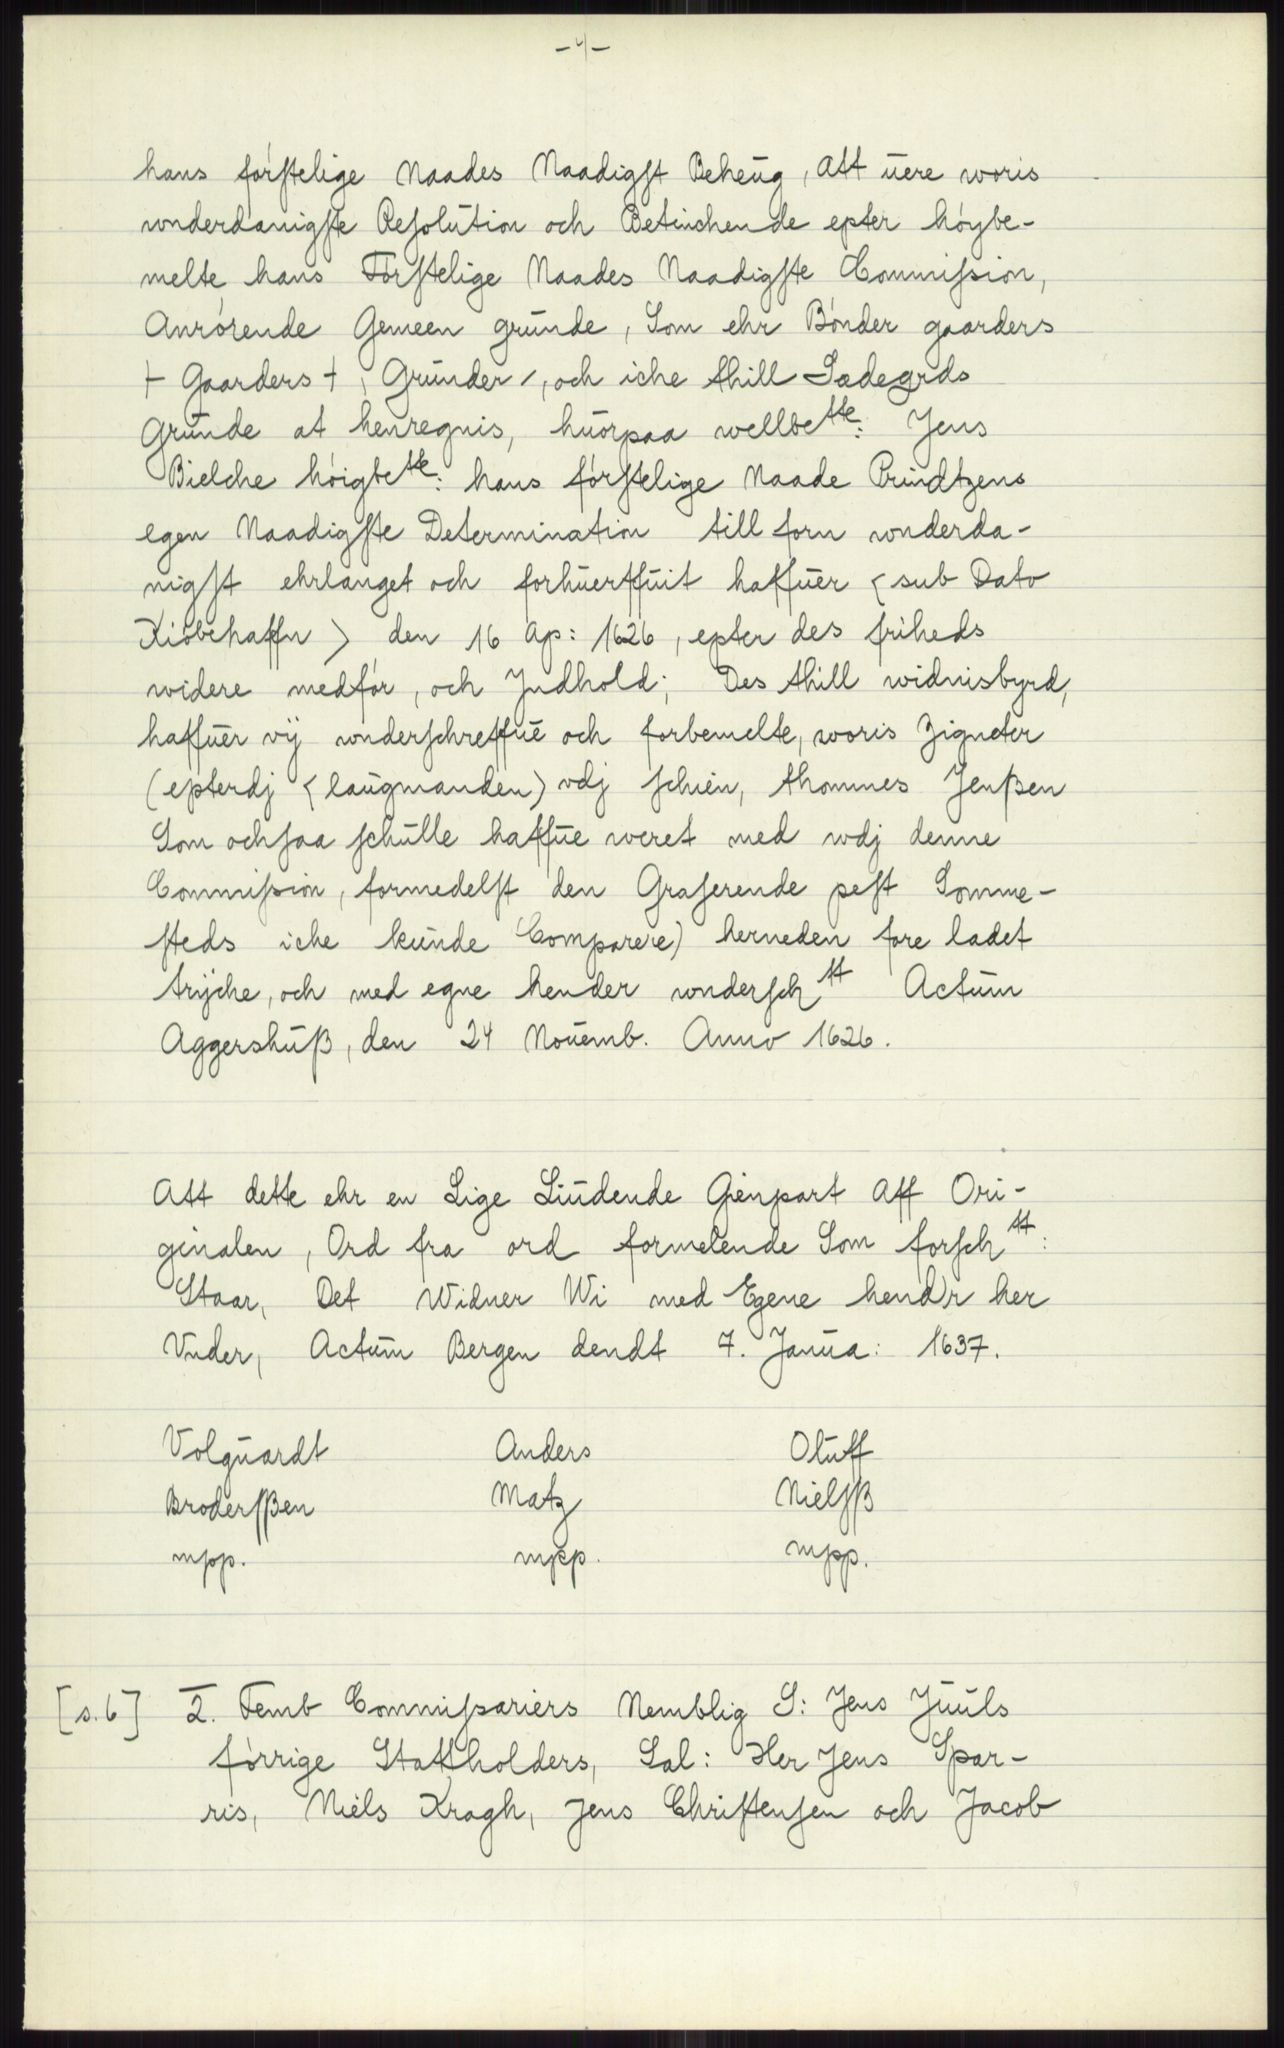 -4-
hans fórstelige Naades Naadigst Beheug, Att uere woris
wnderdanigste Resolution och Betinchende epter hóybe-
melte hans Fórstelige Naades Naadigste Commission,
Anrórende Gemeen grunde, Som ehr Bónder gaarders
+ Gaarders +, Grunder /, och iche thill Sædegrds
Grunde at henregnis, huorpaa wellbe^tte: Jens
Bielche hóigbe^tte: hans fórstelige Naade Prindtzens
egen Naadigste Determination till forn wnderda-
nigst ehrlanget och forhuerffuit haffuer < sub Dato
Kióbehaffn > den 16 Ap: 1626, epter des friheds
widere medfór, och Jndhold; Des thill widnisbyrd,
haffuer vij wnderschreffue och forbemelte, woris Zigneter
(epterdj < laugmanden > vdj schien, thommes Jenßen
Som ochsaa schulle haffue weret med wdj denne
Commission, formedelst den Graserende pest Somme-
steds iche kunde Comparere) herneden fore ladet
trÿche, och med egne hender wndersch^tt Actum
Aggershuß, den 24 Nouemb. Anno 1626.
Att dette ehr en Lige Liudende Gienpart Aff Ori-
ginalen, Ord fra ord formelende Som forsch^tt:
Staar, Det Widner Wi med Egene hend'r her
Vnder, Actum Bergen dendt 7. Janua: 1637.
Volquardt Anders Oluff
Brodersßen Matz Nielsß
mpp. mpp. mpp.
[s. 6] 2. Femb Commissariers Nemblig S: Jens Juuls
fórrige Stattholders, Sal: Her Jens Spar-
ris, Niels Kragh, Jens Christensen och Jacob